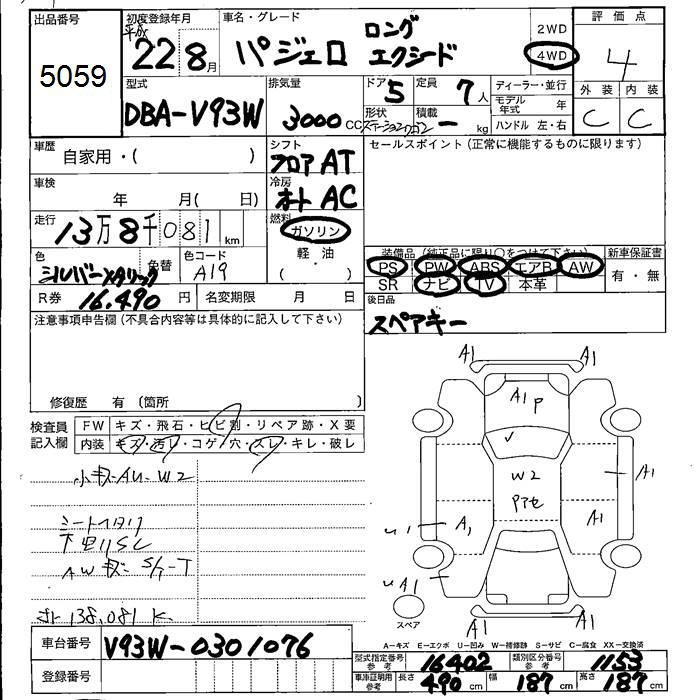 出品番号 初度登録年月 車名・グレード 評価点
平成 22年 8月 パジェロ ロング エクシード 2WD 4WD 4
5059
型式 排気量 ドア 5 定員 7人 ディーラー・並行 外装 内装
DBA-V93W 3000CC 形状 ステーションワゴン 積載 ー kg モデル年式 年 C C
ハンドル 左・右
車歴 自家用・( ) シフト フロア AT セールスポイント(正常に機能するものに限ります)
車検 年 月( 日) 冷房 オート AC
走行 13万8千081km 燃料 ガソリン
軽・油
( )
装備品 (純正品に限り○をつけて下さい) 新車保証書
色 シルバーメタリック 色替 色コード A19 PS PW ABS エアB AW 有・無
SR ナビ TV 本革
R券 16,490円 名変期限 月 日 後日品
スペアキー
注意事項申告欄(不具合内容等は具体的に記入して下さい)
修復歴 有(箇所 )
検査員記入欄 FW キズ・飛石・ヒビ割・リペア跡・X要
内装 キズ・汚レ・コゲ・穴・スレ・キレ・破レ
小キズ AU・W2
シート
AWキズ
138,081K
A1 A1
A1 P
W2
A1
A1 A1
A1
A1 A1
スペア
A=キズ E=エクボ U=凹み W=補修跡 S=サビ C=腐食 XX=交換済
車台番号 V93W-0301076
型式指定番号 参考 16402 類別区分番号 参考 1153
登録番号
車庫証明用 参考 長さ 490cm 幅 187cm 高さ 187cm